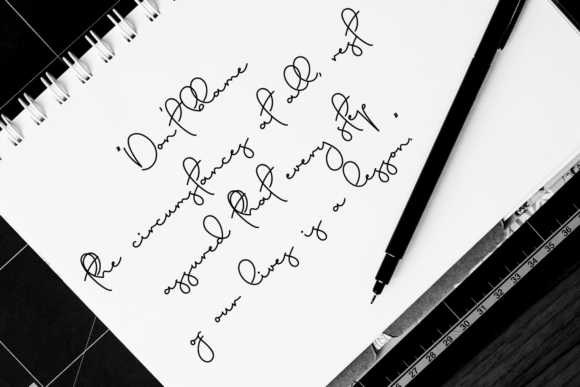 "Don't blame
the circumstances at all, rest
assured that every step
of our lives is a lesson."
27 28 29 30 31 32 33 34 35 36